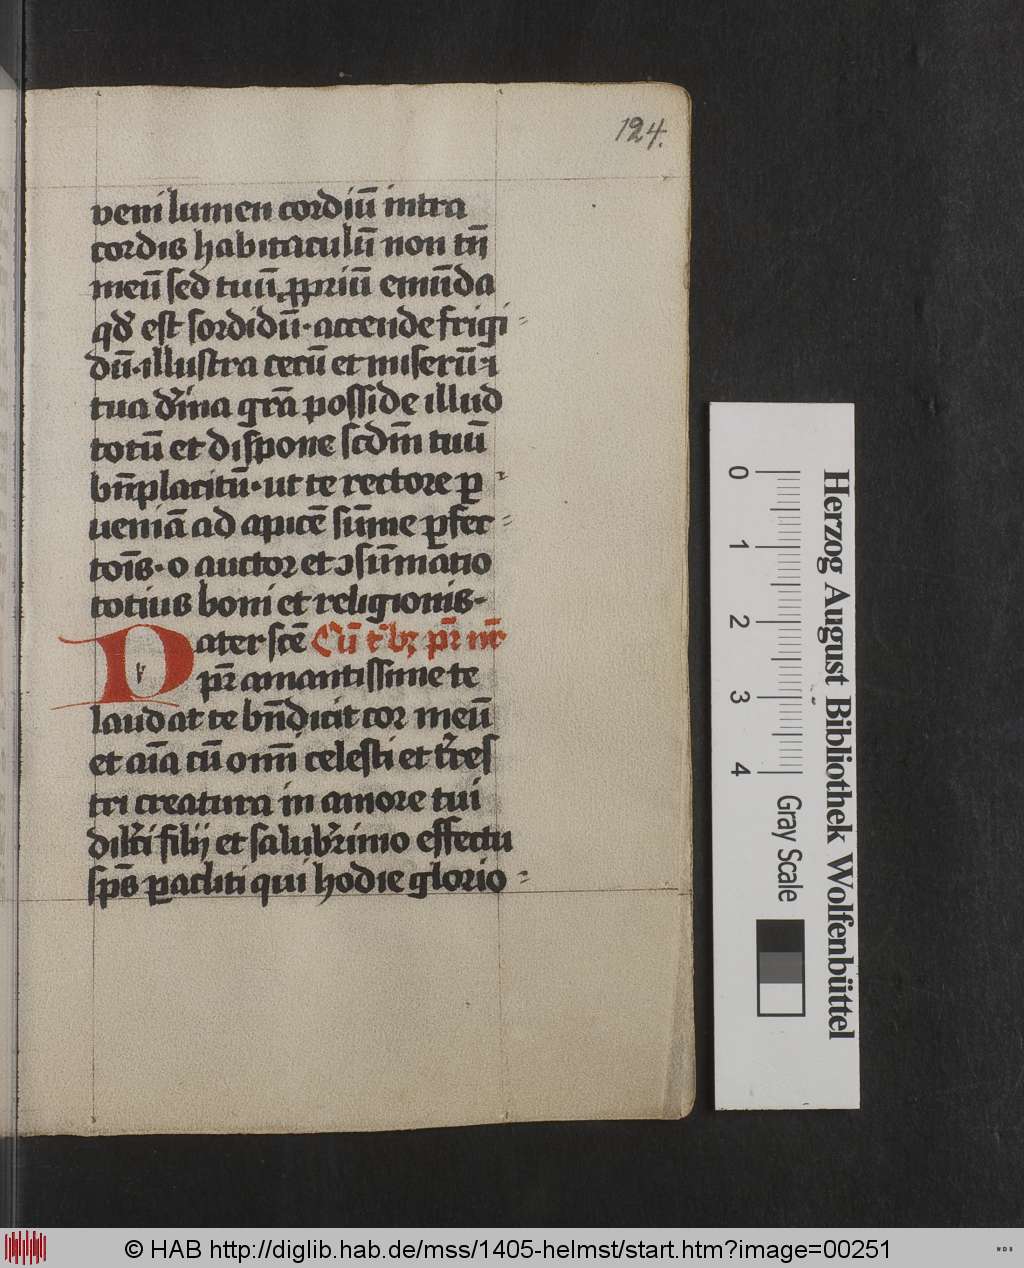 124.
veni lumen cordiū intra
cordis habitaculū non tm̄
meū sed tuū ꝓpriū emūda
qd̓ est sordidū · accende frigi⸗
dū · illustra cecū et miserū · ⁊
tua d̓ina grā posside illud
totū et dispone scdm̄ tuū
bn̄placitū · ut te rectore ꝑ⸗
ueniā ad apicē sūme ꝑfec⸗
tōis · o auctor et ꝯsūmatio
totius boni et religionis ·
Pater scē Cū tˈbꝫ pr̄ nr̄
pr̄ amantissime te
laudat te bn̄dicit cor meū
et aīa cū omī celesti et tˈres
tri creatura in amore tui
dilcˈi filij et salubˈrimo effectu
sps̄ ꝑacliti qui hodie glorio⸗
0
1
2
3
4
Gray Scale
Herzog August Bibliothek Wolfenbüttel
© HAB http://diglib.hab.de/mss/1405-helmst/start.htm?image=00251